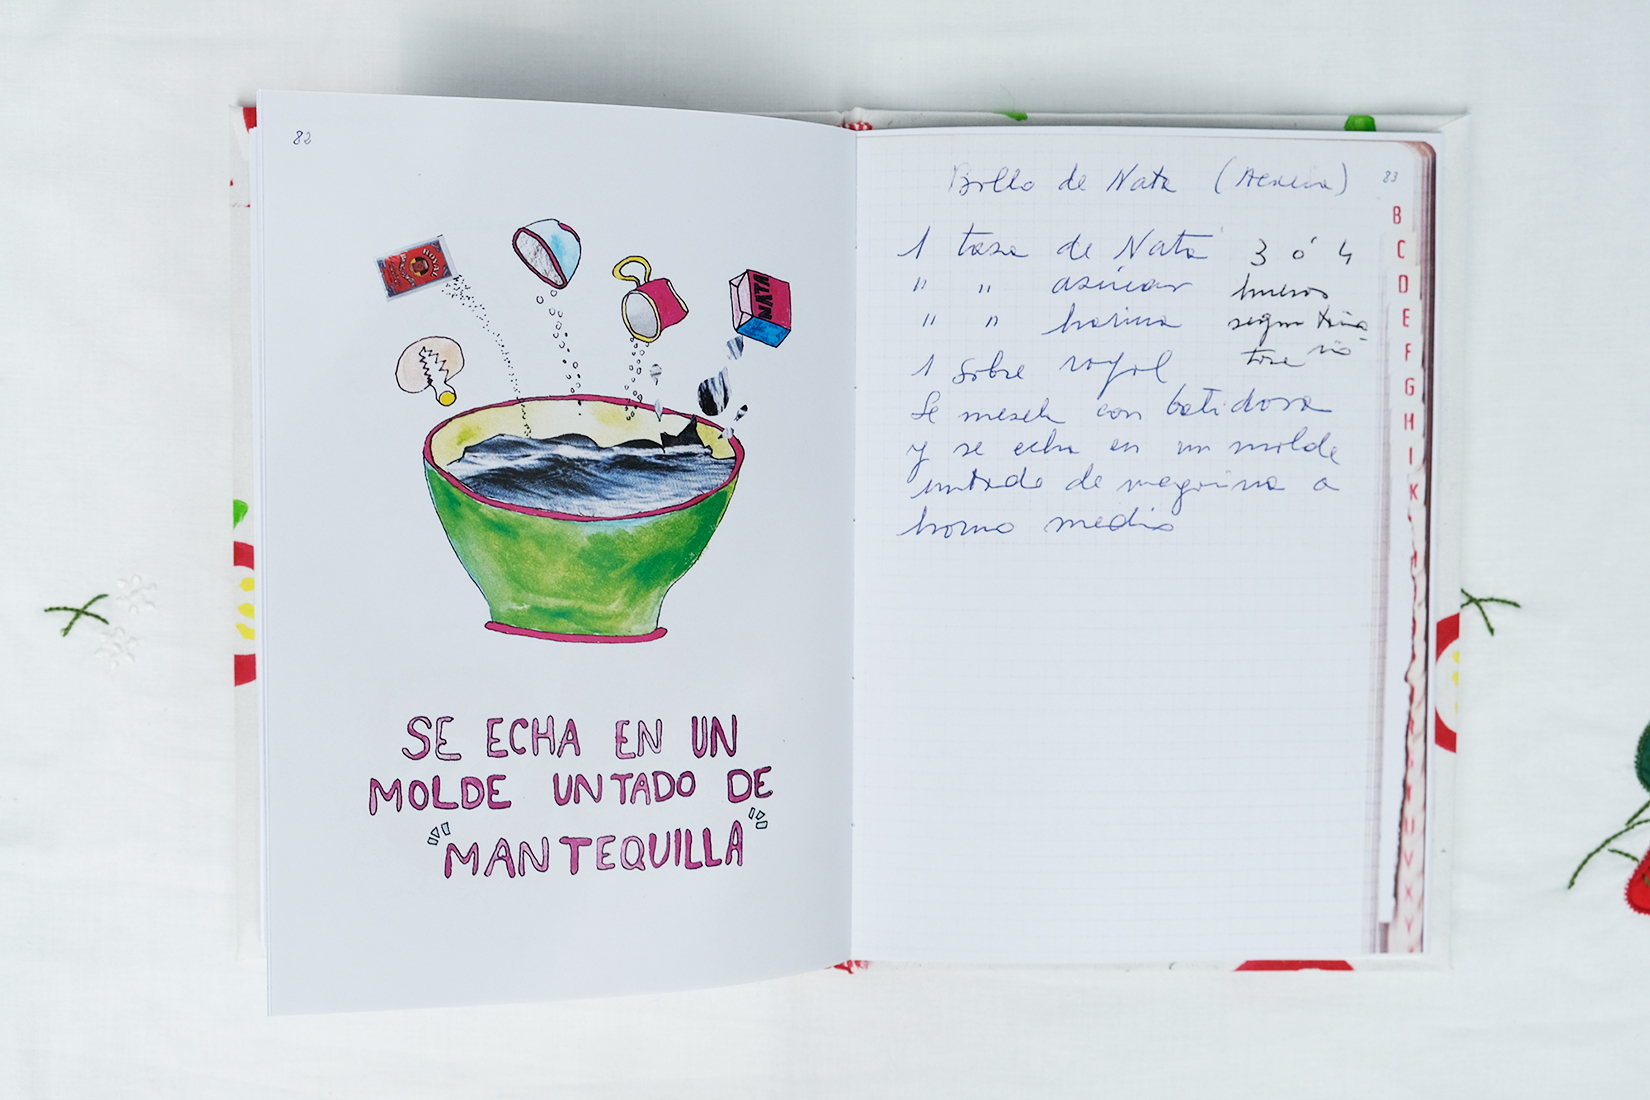 82
ROYAL
NATA
SE ECHA EN UN
MOLDE UNTADO DE
"MANTEQUILLA"
83
Bollo de Nata
1 tasa de Nata 3 ó 4
" " asúcar huevos
" " harina segun
1 sobre royal
Se mescla con batidora
y se echa en un molde
untado de a
horno medio
B
C
D
E
F
G
H
I
K
U
V
X
Y